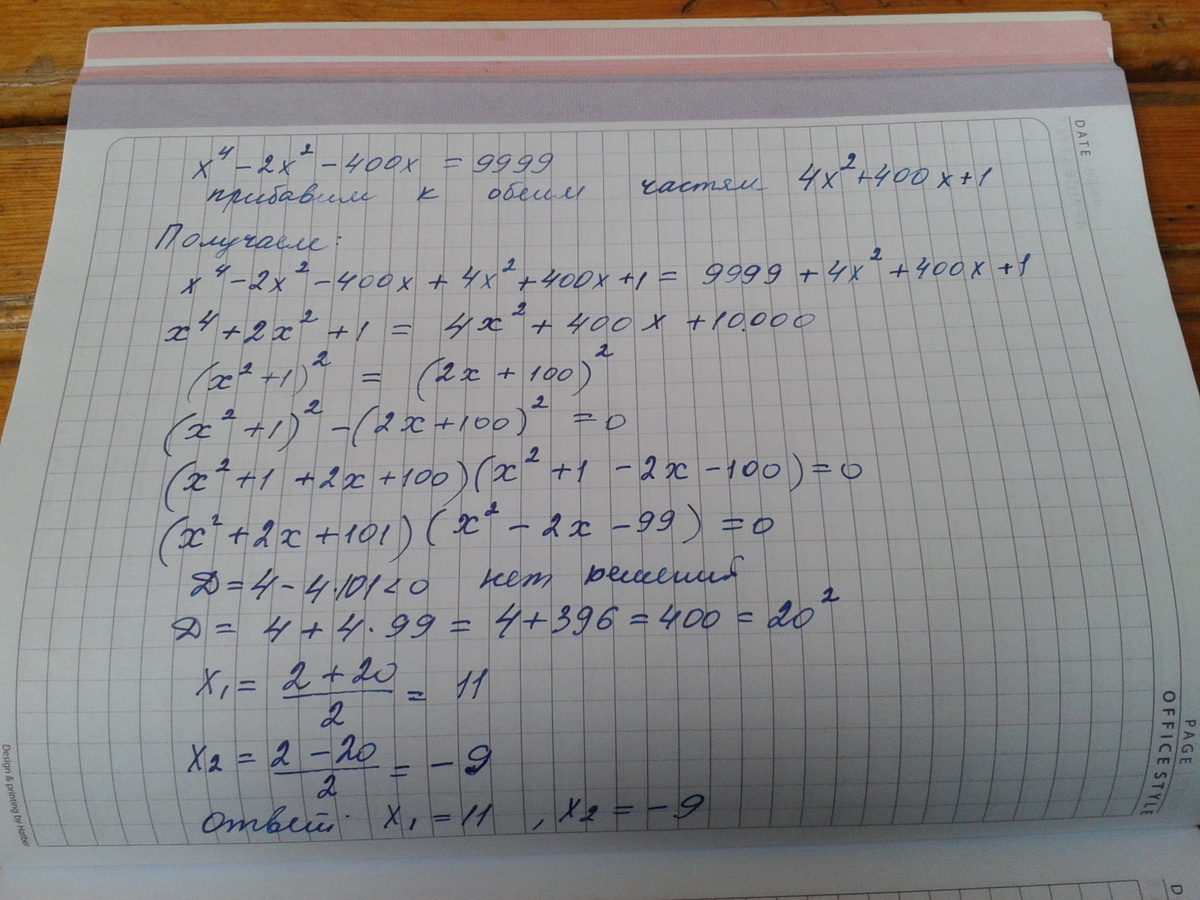 DATE
x⁴ - 2x² - 400x = 9999
прибавим к обеим частям 4x² + 400x + 1
Получаем:
x⁴ - 2x² - 400x + 4x² + 400x + 1 = 9999 + 4x² + 400x + 1
x⁴ + 2x² + 1 = 4x² + 400x + 10.000
(x² + 1)² = (2x + 100)²
(x² + 1)² - (2x + 100)² = 0
(x² + 1 + 2x + 100)(x² + 1 - 2x - 100) = 0
(x² + 2x + 101)(x² - 2x - 99) = 0
D = 4 - 4·101 < 0 нет решений
D = 4 + 4·99 = 4 + 396 = 400 = 20²
x₁ = (2 + 20)/2 = 11
x₂ = (2 - 20)/2 = -9
ответ: x₁ = 11, x₂ = -9
PAGE
OFFICE STYLE
Design & printing by Hatber
D